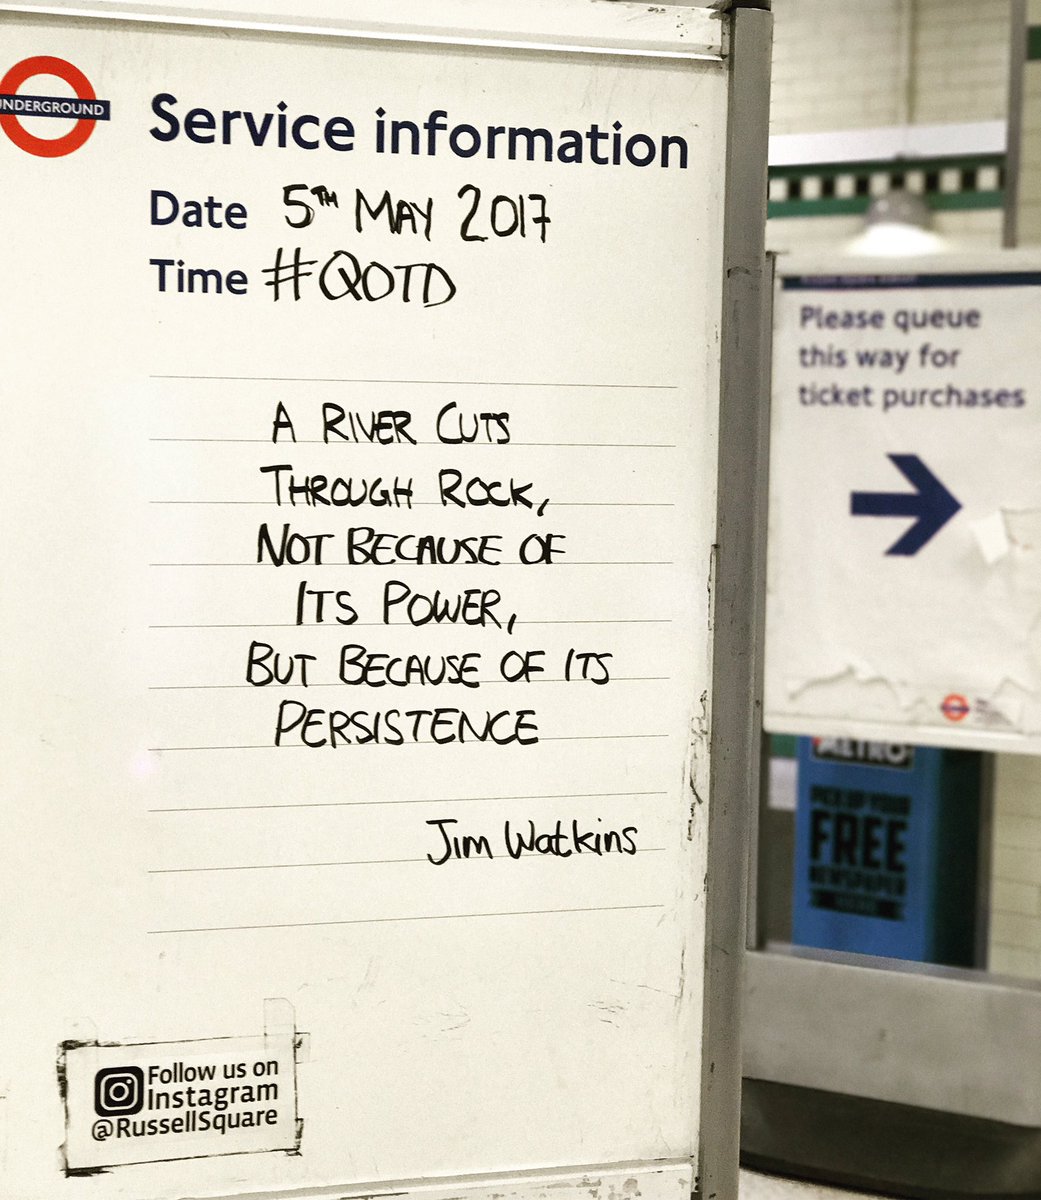 UNDERGROUND
Service information
Date 5TH MAY 2017
Time #QOTD
A RIVER CUTS
THROUGH ROCK,
NOT BECAUSE OF
ITS POWER,
BUT BECAUSE OF ITS
PERSISTENCE
Jim Watkins
Follow us on
Instagram
@RussellSquare
Please queue
this way for
ticket purchases
METRO
PICK UP YOUR
FREE
NEWSPAPER